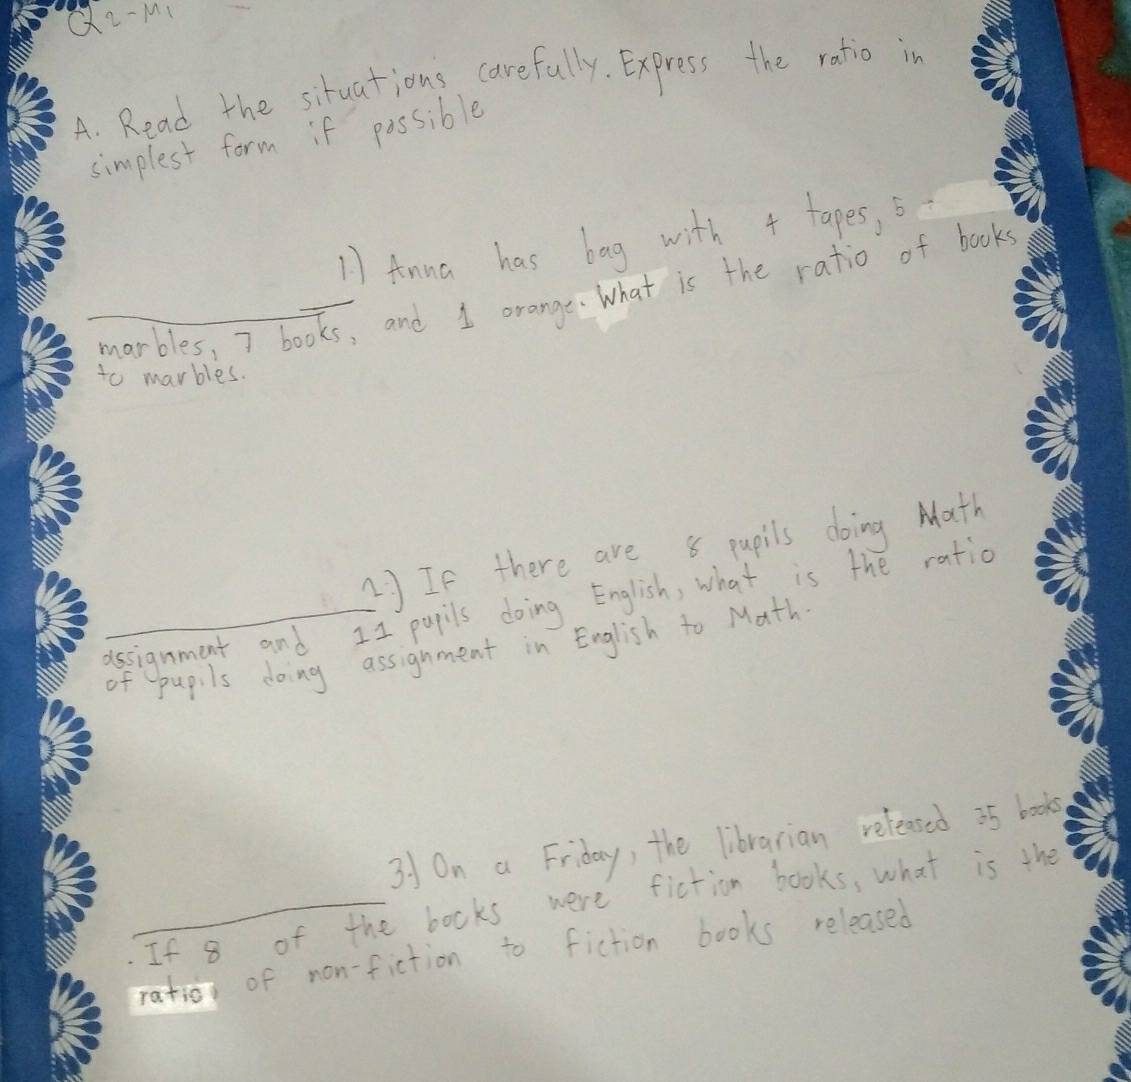 Q2-M1
A. Read the situations carefully. Express the ratio in
simplest form if possible
1.) Anna has bag with 4 tapes, 5
marbles, 7 books, and 1 orange. What is the ratio of books
to marbles.
2.) If there are 8 pupils doing Math
assignment and 11 pupils doing English, what is the ratio
of pupils doing assignment in English to Math.
3.) On a Friday, the librarian released 35 books
. If 8 of the books were fiction books, what is the
ratio of non-fiction to fiction books released